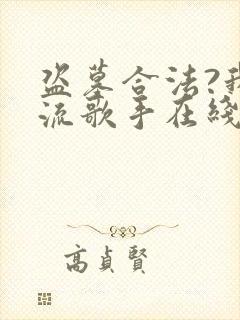 盗墓合法?我
流歌手在綫
高貞賢